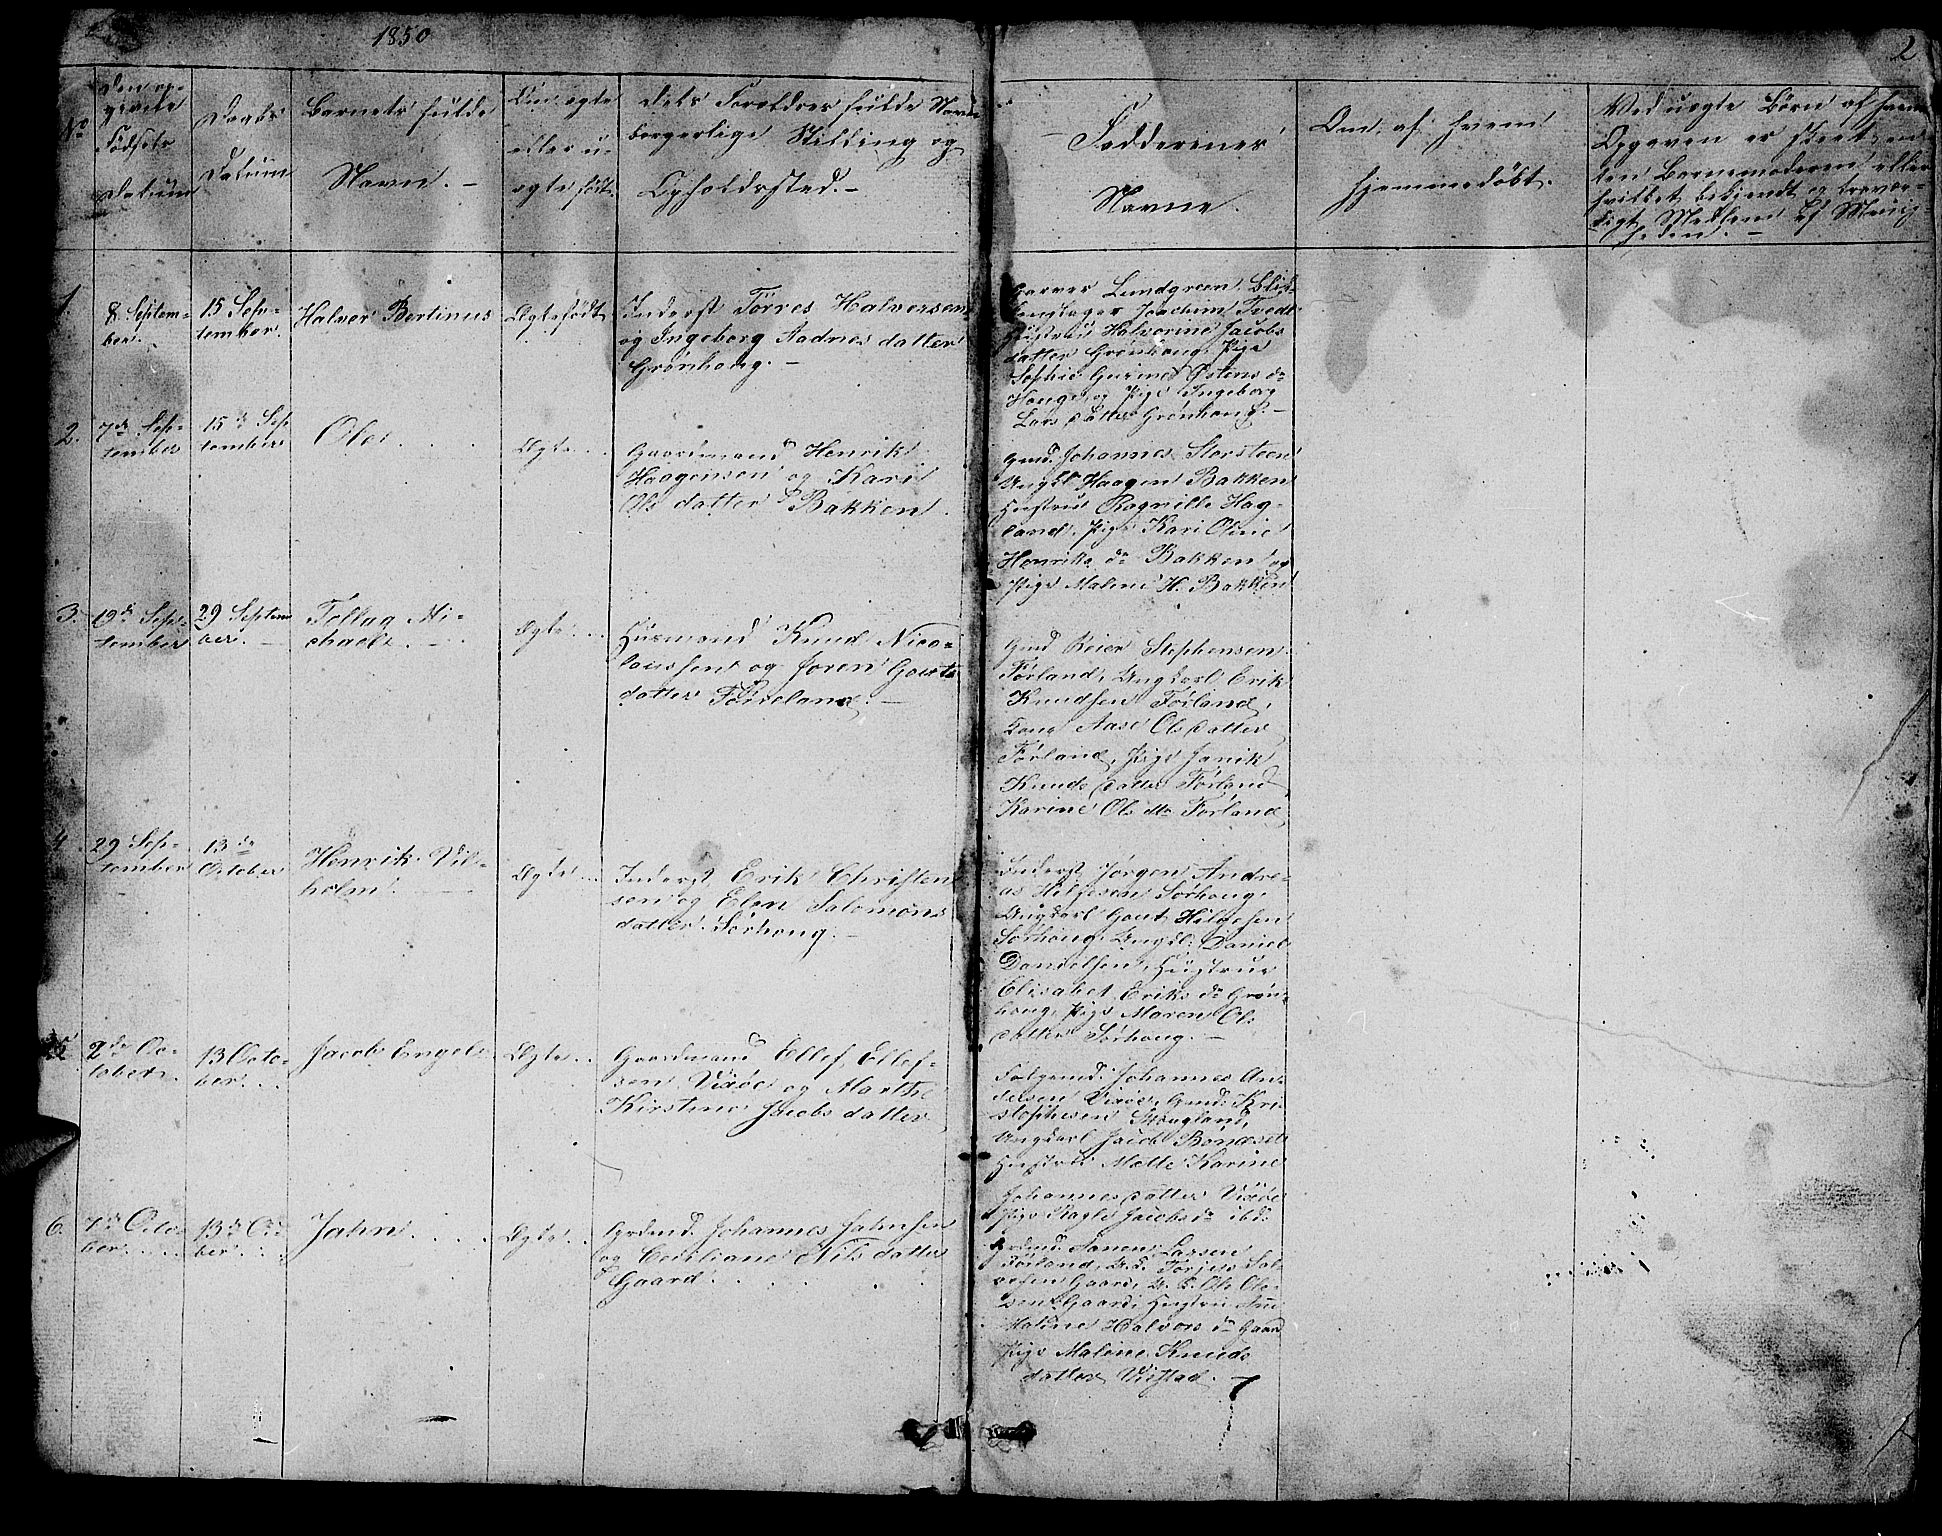 1850
2
No
Den op-
givete
Fødsels
Datum
Daabs
Datum
Barnets fulde
Navn. -
Om ægte
eller u-
ægte født.
Dets Foreldres fulde Navn
borgerlige Stilling og
Opholdssted. -
Fadderenes
Navne.
Om, af hvem
hjemmedøbt.
Ved uægte Børn af hvem
Opgaven er skeet, en
ten Barnemoderen eller
hvilket bekjendt og troevær-
digt Medlem af Menig-
heden. -
1.
8 Septem-
ber.
15 Sep-
tember.
Halvor Bertinus
Ægtefødt
Inderst Tørres Halvorsen
og Ingeborg Aadnes datter
Grønhoug. -
Garver Lundgreen, Blik
Joachim Tvedt
Hustru Halvorine Jacobs
datter Grønhoug, Pige
Sophie Østens dr
Hauge, og Pige Ingeborg
Lars datter Grønhoug. -
2.
7de Sep-
tember
15de Sep
tember
Ole . . .
Ægte . .
Gaardmand Henrik
Haagensen og Kari
Ols datter Bakken.
Gmd. Johannes Storsteen
Ungkl Haagen Bakken
Hustru Ragnille Hag-
land, Pige Kari Oline
Henriks dr Bakken og
Pige Malene H. Bakken
3.
19de Sep-
tember
29 Septem
ber. -
Tollag Mi-
chael. -
Ægte . . .
Husmand Knud Nico-
laussen og Joren Gauts
datter Førreland. -
Gmd Reier Stephensen
Førland, Ungkarl Erik
Knudsen Førland,
Kone Aase Ols datter
Førland, Pige Janik
Knuds datter Førland
Karine Ols dtr Førland
4.
29 Sep-
tember
13de
October
Henrik Vil-
helm.
Ægte . . .
Inderst Erik Christen
sen og Elen Salomons
datter Sørhoug. -
Inderst Jørgen Andre-
as Helgesen Sørhoug,
Ungkarl Gaut Helgesen
Sørhoug, Ungkl. Daniel
Danielsen, Hustrue
Elisabet Eriks dr Grøn
houg, Pige Maren Ols
datter Sørhoug. -
5
2de Oc-
tober.
13 Octo-
ber . . .
Jacob Engel
Ægte . .
Gaardmand Ellef Ellef-
sen Visøe og Marthe
Kirstine Jacobs datter
Følgemd. Johannes An-
dersen Visøe, Gmd. Kri-
stophersen Skougland,
Ungkarl Jacob
Hustru Mette Karine
Johannesdatter Visøe
Pige Jacobs dr ibd.
6.
7de Octo-
ber . . . .
13de Oc-
ber . . .
Jahn . . . .
Ægte . .
Grdmd. Johannes Jahnsen
og Ceciliane Nils datter
Gaard . . . .
Grdmd. Larsen
Førland, Torjer Sal
vesen Gaard, U. K. Ole Ole-
sen Gaard, Hustru Ane
Maline Halvors dr Gaar
Pige Malene Knuds
datter Visstad. -